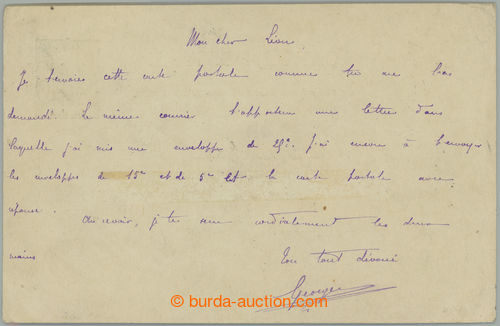 Mon cher Léon
Je t'envoies cette carte postale comme tu me l'as
demandé. Le même courrier t'apportera une lettre dans
laquelle j'ai mis une enveloppe de 25c. J'ai encore à t'envoyer
les enveloppes de 15c et de 5c et la carte postale avec
réponse.
Au revoir, je te serre cordialement les deux
mains
Ton tout dévoué
Georges
burda-auction.com